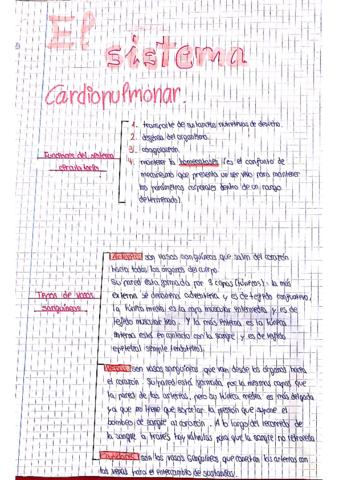 El
sistema
Cardiopulmonar.
1. transporte de sustancias nutritivas de desecho.
2. defensa del organismo.
3. coagulación.
Funciones del sistema
circulatorio
4. mantener la homeostasis (es el conjunto de
mecanismos que presenta un ser vivo para mantener
los parámetros corporales dentro de un rango
determinado).
Arterias son vasos sanguíneos que salen del corazón
hacia todos los órganos del cuerpo.
Su pared esta formada por 3 capas (túnicas): la más
externa se denomina adventicia y es de tejido conjuntivo,
Tipos de vasos
sanguíneos
la túnica media es la capa muscular intermedia y es de
tejido muscular liso. Y la más interna es la túnica
interna está en contacto con la sangre y es de tejido
epitelial (simple endotelio).
Venas son vasos sanguíneos que van desde los órganos hasta
el corazón. Su pared está formada por la mismas capas que
la pared de las arterias, pero su túnica media es más delgada
ya que no tiene que soportar la presión que supone el
bombeo de sangre al corazón. A lo largo del recorrido de
la sangre a través hay válvulas para que la sangre no retroceda
Capilares son los vasos sanguíneos que conectan las arterias con
las venas para el intercambio de sustancias.